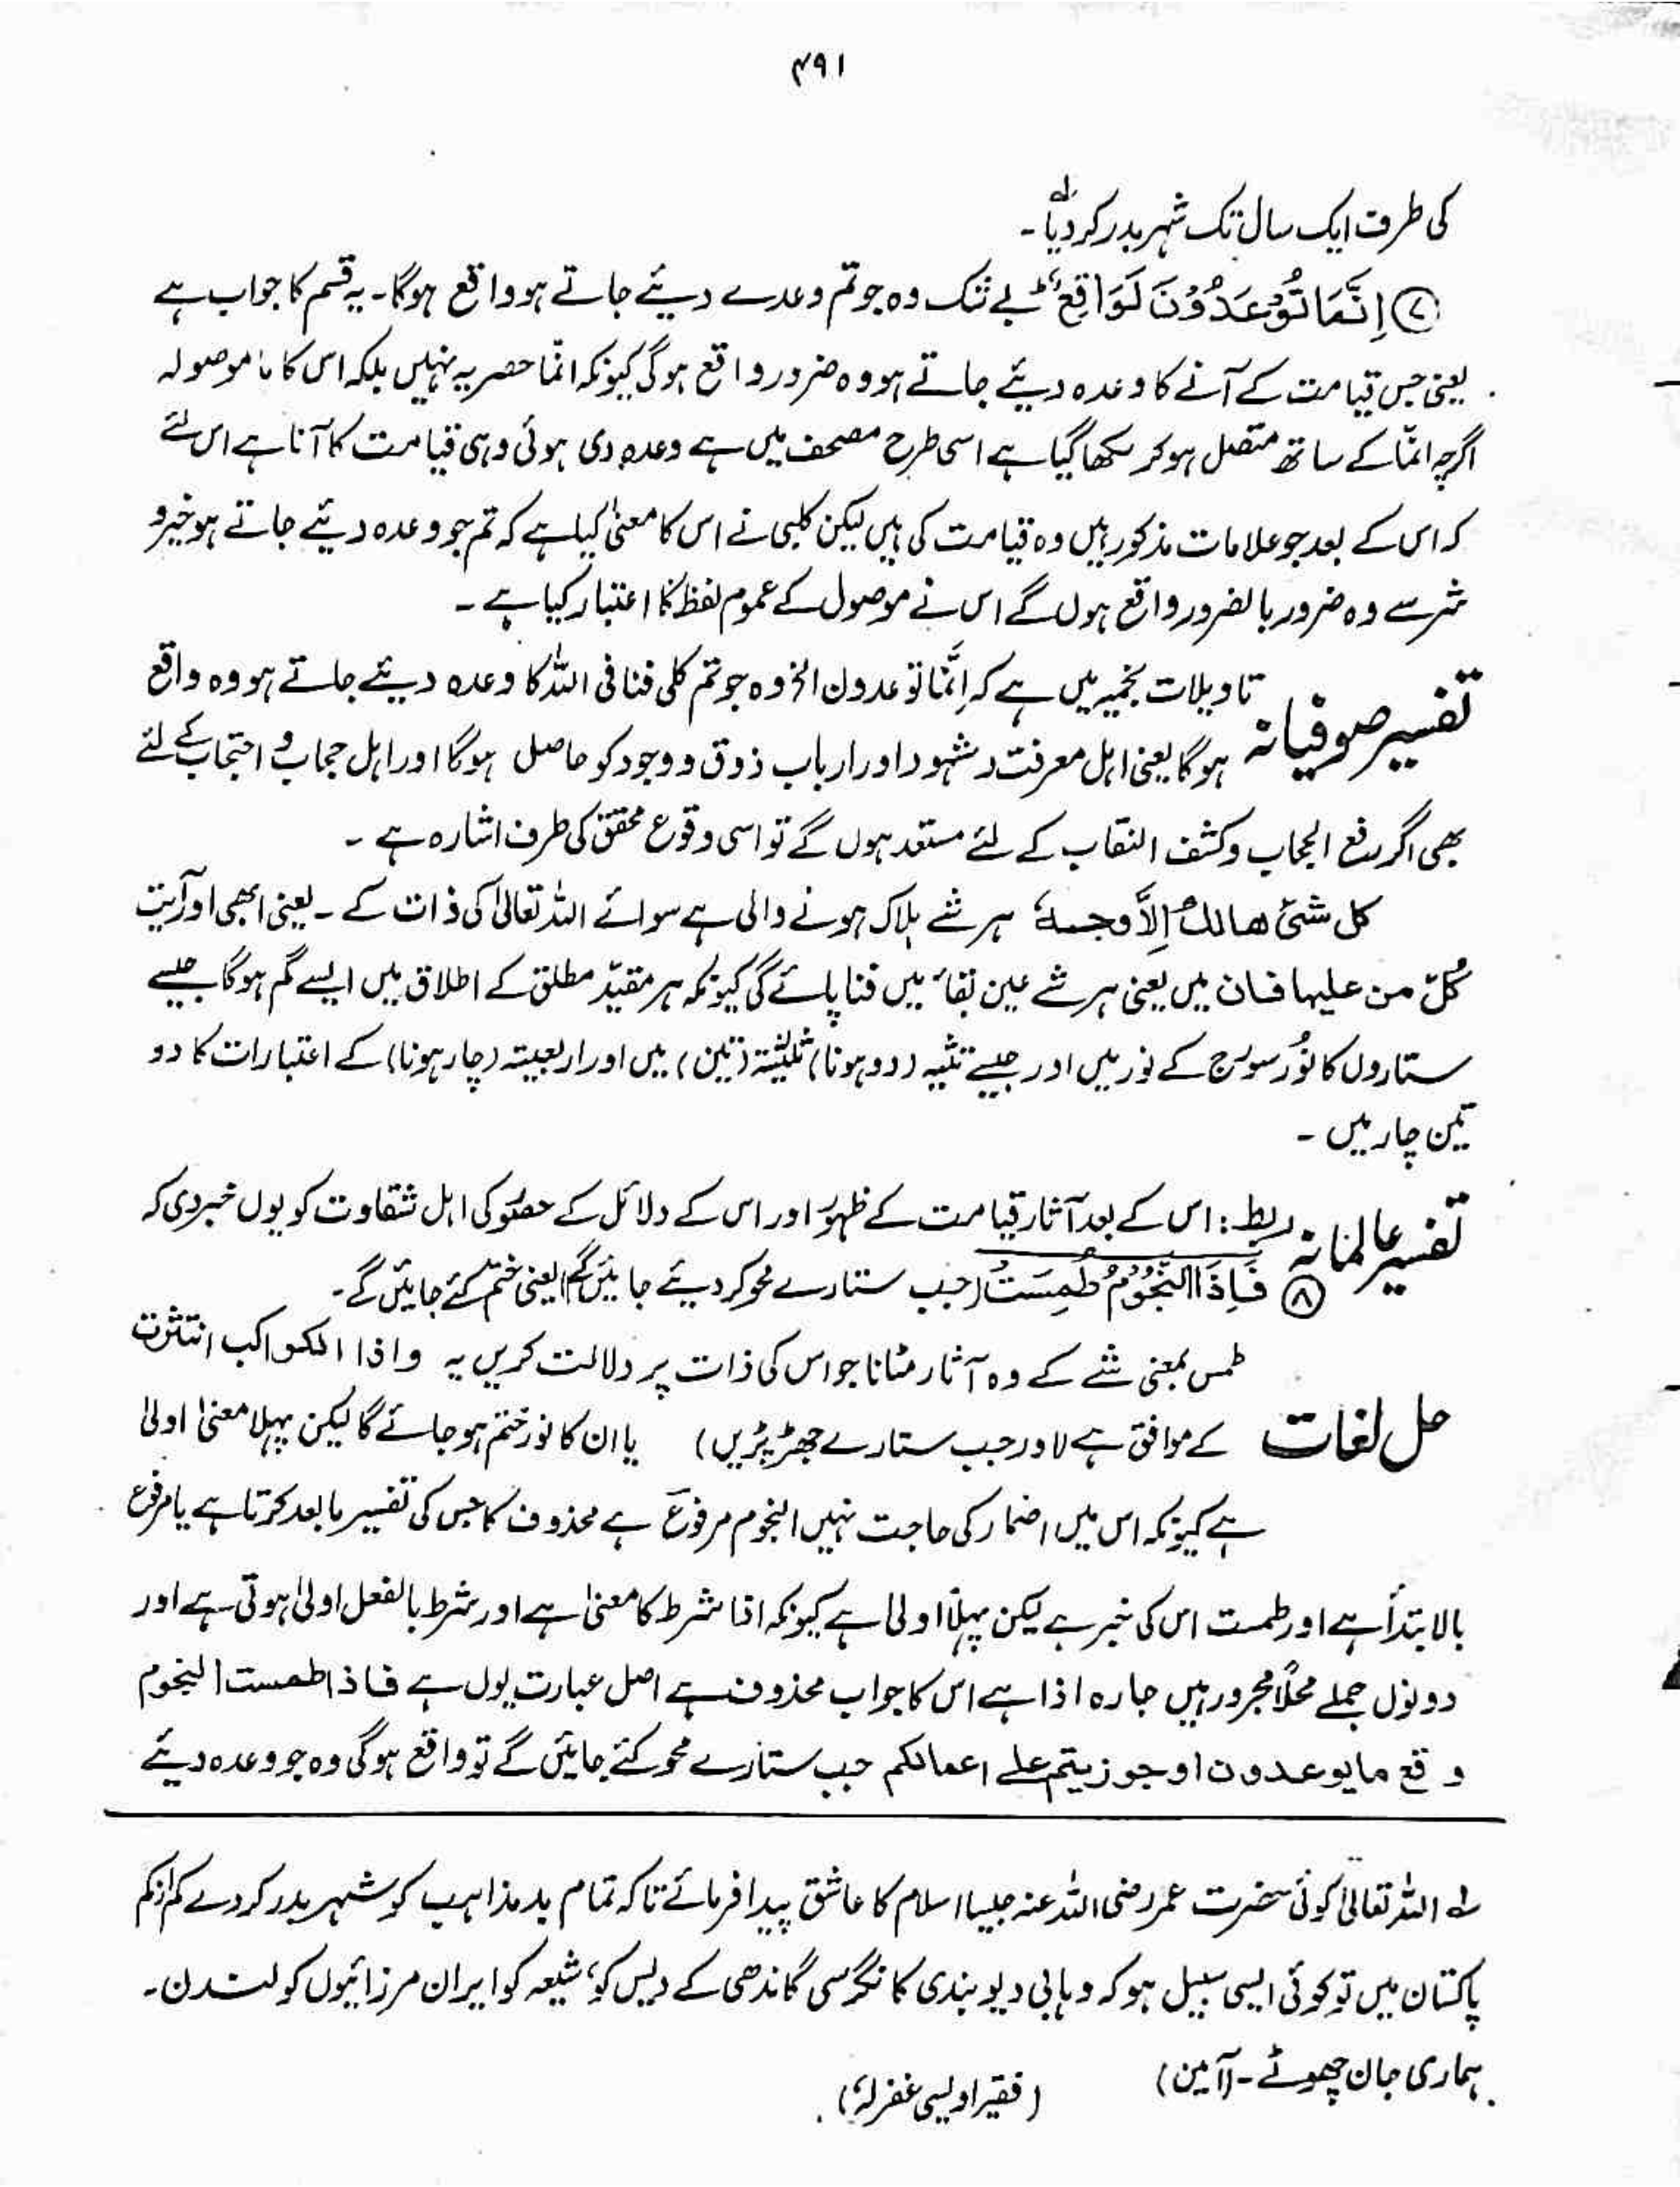 ۴۹۱
کی طرف ایک سال تک شہر بدر کر دیا ؎۱۔
⑦ اِنَّمَا تُوْعَدُوْنَ لَوَاقِعٌ ؕ بے شک وہ جو تم وعدے دیئے جاتے ہو واقع ہوگا۔ یہ قسم کا جواب ہے
یعنی جس قیامت کے آنے کا وعدہ دیئے جاتے ہو وہ ضرور واقع ہوگی کیونکہ انّما حصریہ نہیں بلکہ اس کا ما موصولہ
اگرچہ انّما کے ساتھ متصل ہوکر لکھا گیا ہے اسی طرح مصحف میں ہے وعدہ دی ہوئی وہی قیامت کا آنا ہے اس لئے
کہ اس کے بعد جو علامات مذکور ہیں وہ قیامت کی ہیں لیکن کلبی نے اس کا معنیٰ کیا ہے کہ تم جو وعدہ دیئے جاتے ہو خیر و
شر سے وہ ضرور بالضرور واقع ہوں گے اس نے موصول کے عموم لفظ کا اعتبار کیا ہے ۔
تفسیر صوفیانہ تاویلات نجمیہ میں ہے کہ اِنَّمَا توعدون الخ وہ جو تم کلی فنا فی اللہ کا وعدہ دیئے جاتے ہو وہ واقع
ہوگا یعنی اہل معرفت و شہود اور ارباب ذوق و وجود کو حاصل ہوگا اور اہل حجاب و احتجاب کے لئے
بھی اگر رفع الحجاب و کشف النقاب کے لئے مستعد ہوں گے تو اسی وقوع محقق کی طرف اشارہ ہے ۔
کل شئ ھالكٌ اِلَّا وجہہٗ ہر شے ہلاک ہونے والی ہے سوائے اللہ تعالیٰ کی ذات کے ۔ یعنی ابھی اور آیت
کُلّ من علیہا فان میں یعنی ہر شے عین بقاء میں فنا پائے گی کیونکہ ہر مقیّد مطلق کے اطلاق میں ایسے گم ہوگا جیسے
ستاروں کا نُور سورج کے نور میں اور جیسے تثنیہ (دو ہونا) ثلٰثیۃ (تین) میں اور اربعیتہ (چار ہونا) کے اعتبارات کا دو
تین چار میں ۔
تفسیر عالمانہ ربط : اس کے بعد آثار قیامت کے ظہور اور اس کے دلائل کے حصول کی اہل شقاوت کو یوں خبر دی کہ
⑧ فَاِذَا النُّجُوْمُ طُمِسَتْ (جب ستارے محو کر دیئے جائیں گے) یعنی ختم کئے جائیں گے۔
حل لغات طمس بمعنی شے کے وہ آثار مٹانا جو اس کی ذات پر دلالت کریں یہ واذا الکواکب انتثرت
کے موافق ہے (اور جب ستارے جھڑ پڑیں) یا ان کا نور ختم ہو جائے گا لیکن پہلا معنیٰ اولیٰ
ہے کیونکہ اس میں اضمار کی حاجت نہیں النجوم مرفوع ہے محذوف کا جس کی تفسیر مابعد کرتا ہے یا مرفوع
بالابتدأ ہے اور طمست اس کی خبر ہے لیکن پہلا اولیٰ ہے کیونکہ اذا شرط کا معنیٰ ہے اور شرط بالفعل اولیٰ ہوتی ہے اور
دونوں جملے محلًا مجرور ہیں جارہ اذا ہے اس کا جواب محذوف ہے اصل عبارت یوں ہے فاذا طمست النجوم
وقع مایوعدون او جوزیتم علے اعمالکم جب ستارے محو کئے جائیں گے تو واقع ہوگی وہ جو وعدہ دیئے
؎۱ اللہ تعالیٰ کوئی حضرت عمر رضی اللہ عنہ جیسا اسلام کا عاشق پیدا فرمائے تاکہ تمام بد مذاہب کو شہر بدر کر دے کم از کم
پاکستان میں تو کوئی ایسی سبیل ہو کہ وہابی دیوبندی کانگرسی گاندھی کے دیس کو، شیعہ کو ایران مرزائیوں کو لندن۔
ہماری جان چھوٹے ۔ (آمین) (فقیر اویسی غفرلہٗ)